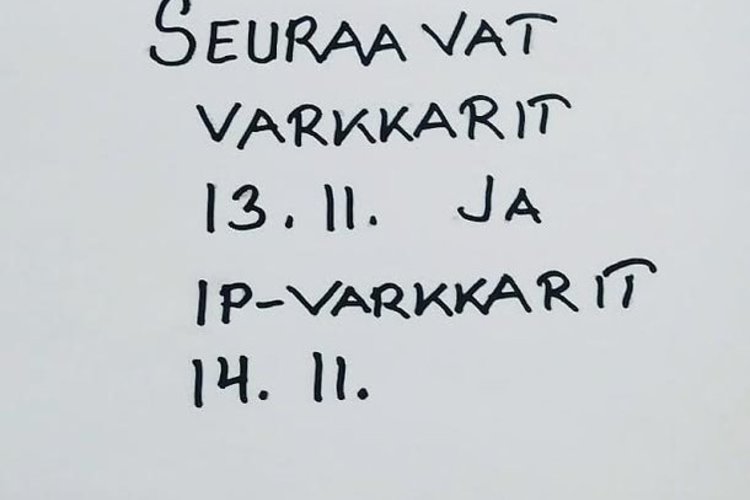 SEURAAVAT
VARKKARIT
13.11. JA
IP-VARKKARIT
14.11.